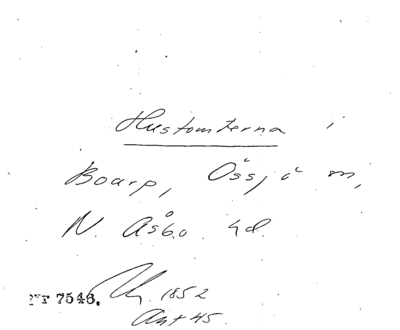 Hustomterna i
Boarp, Össjö sn,
N. Åsbo hd.
Nr 7546. 1852
Ant 45.